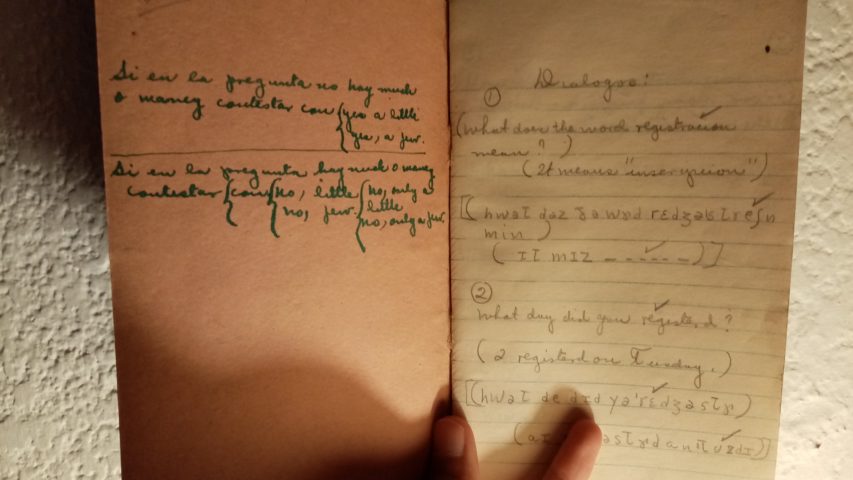 Si en la pregunta no hay much
o maney contestar con { yes a little
{ yes, a few.
Si en la pregunta hay much o maney
contestar { con { no, little { no, only a
little
{ no, few. { no, only a few.
Dialogoo:
①
(What does the word registracion
mean?)
(It means "inscripcion")
[(hwət dəz ðə wɝd rɛdʒəstreʃn
min)
(ɪt mɪz ------)]
②
What day did you registerd?
(I registerd on Tuesday.)
[(hwət de dɪd yə'rɛdʒəstɝ)
(aɪ əstɝd an'tuzdɪ)]